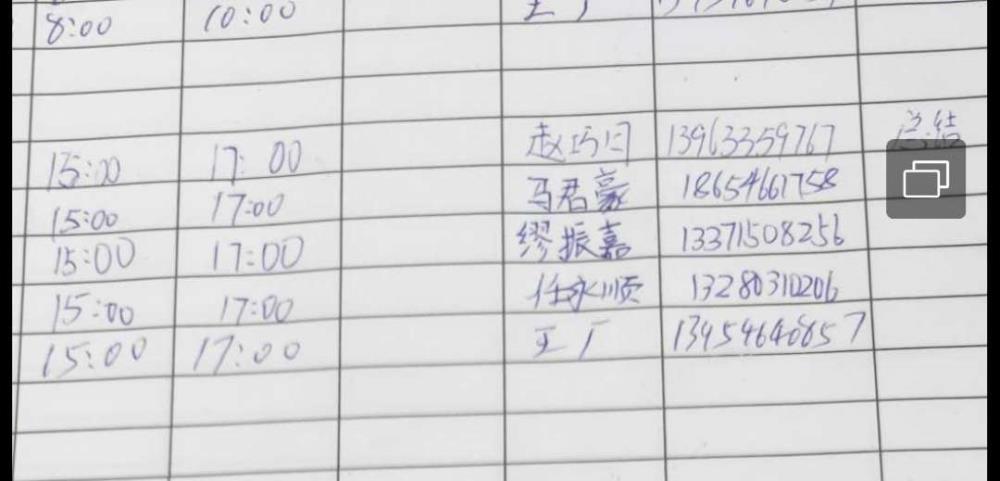 8:00 10:00 王广
15:00 17:00 赵巧月 13963359767 总结
15:00 17:00 马君豪 18654661758
15:00 17:00 缪振嘉 13371508256
15:00 17:00 任永顺 13280310206
15:00 17:00 王广 13454640857